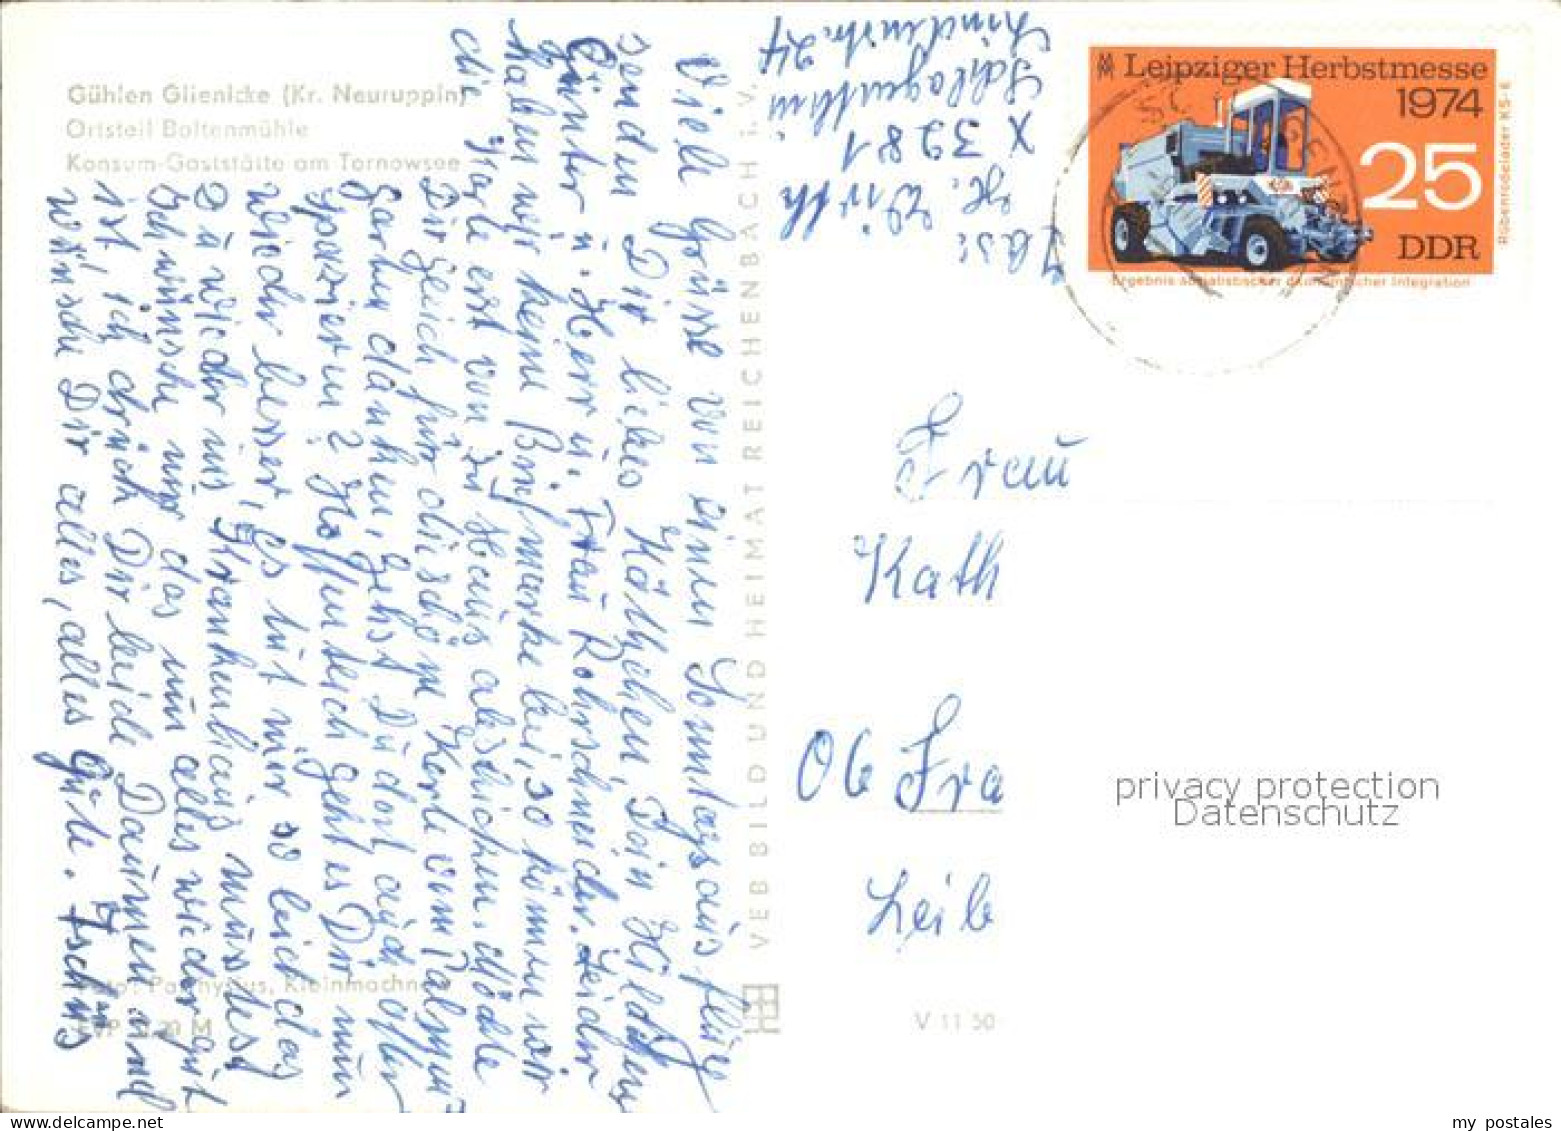 Gühlen Glienicke (Kr. Neuruppin)
Ortsteil Boltenmühle
Konsum-Gaststätte am Tornowsee
Viele Grüsse von einem Sonntagsausflug
senden Dir liebes Käthchen, Dein Hildchen
Günter u. Herr u. Frau Rohrschneider. Leider
haben wir keine Briefmarke bei, so können wir
die Karte erst von zu Haus abschicken. Möchte
Dir gleich für die schöne Karte vom Palmen
Garten danken, gehst Du dort auch öfter
spazieren? Hoffentlich geht es Dir nun
wieder besser, es tut mir so leid das
Du wieder ins Krankenhaus musstest
ich wünsche nur das nun alles wieder gut
ist, ich drück Dir beide Daumen und
wünsche Dir alles, alles Gute. Tschüs
Foto: Parchysius, Kleinmachnow
EVP 0,20 M
VEB BILD UND HEIMAT REICHENBACH i. V.
V 11 50
Abs:
H. Wirth
X 3281
Schlagenthin
Lindenstr. 24
Leipziger Herbstmesse
1974
25
DDR
Rübenrodelader KS-6
Ergebnis sozialistischer ökonomischer Integration
Frau
Kath
06 Fra
Leib
privacy protection
Datenschutz
my postales